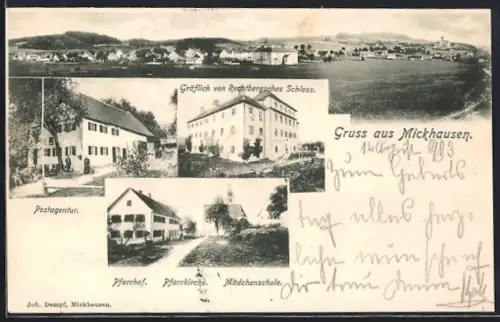 Gräflich von Rechtbergsches Schloss.
Gruss aus Mickhausen.
Postagentur.
Pfarrhof. Pfarrkirche. Mädchenschule.
Joh. Dempf, Mickhausen.
1903
Zum Geburts
tag alles herz
liche wünschen
dir